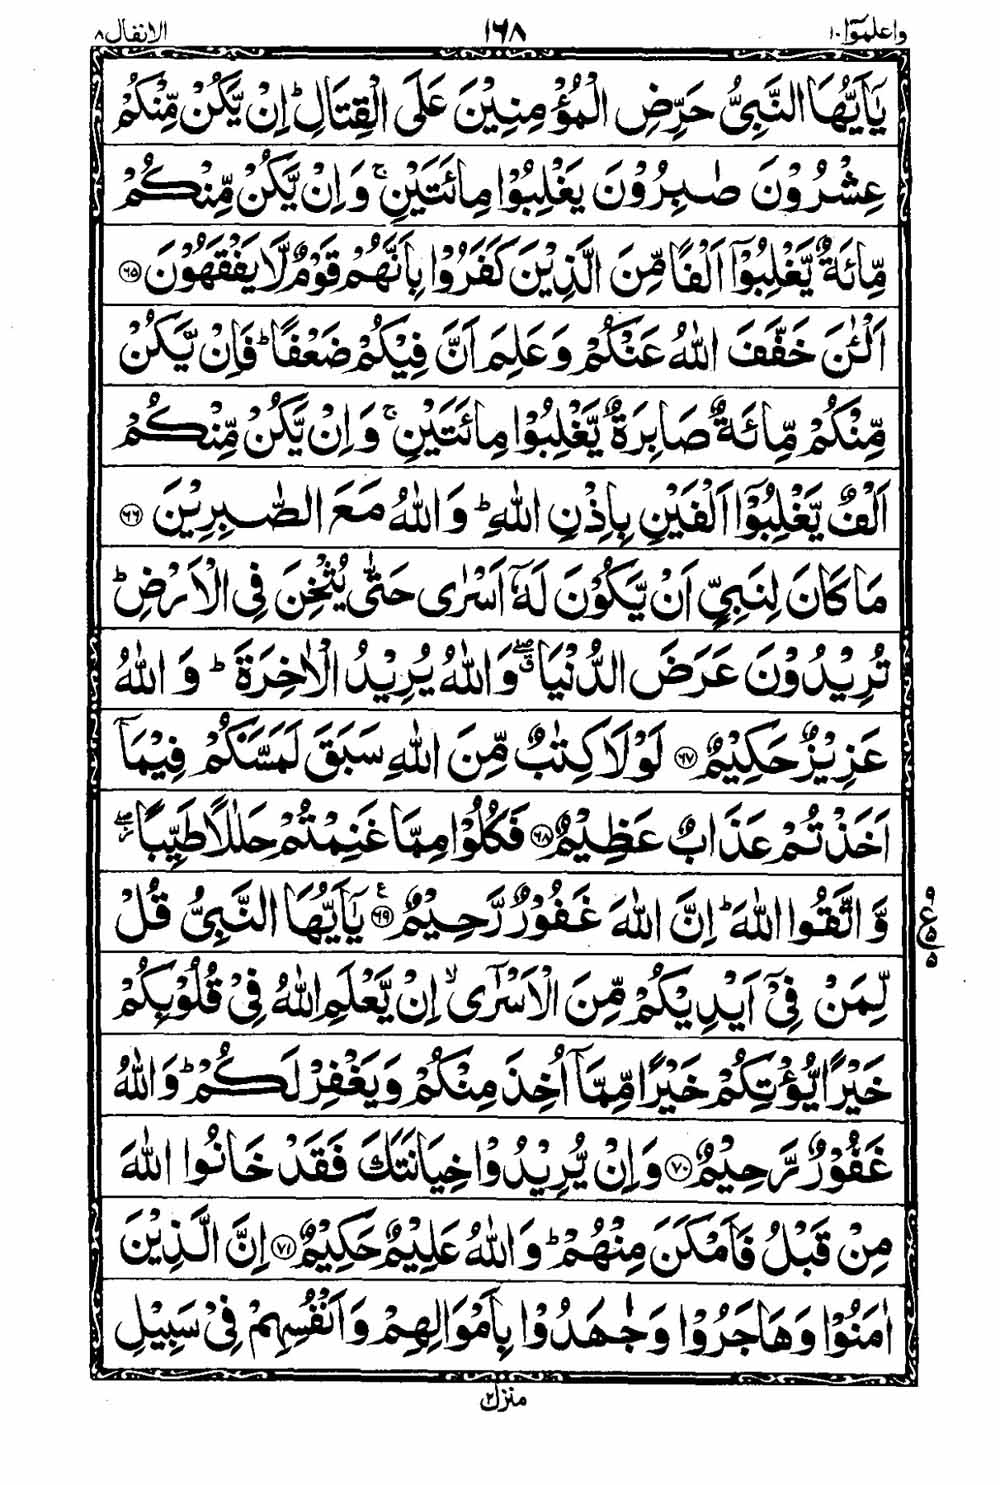 واعلموٓا ١٠ ١٦٨ الانفال ٨
يٰۤاَيُّهَا النَّبِىُّ حَرِّضِ الْمُؤْمِنِيْنَ عَلَى الْقِتَالِؕ اِنْ يَّكُنْ مِّنْكُمْ
عِشْرُوْنَ صٰبِرُوْنَ يَغْلِبُوْا مِائَتَيْنِۚ وَاِنْ يَّكُنْ مِّنْكُمْ
مِّائَةٌ يَّغْلِبُوْۤا اَلْفًا مِّنَ الَّذِيْنَ كَفَرُوْا بِاَنَّهُمْ قَوْمٌ لَّا يَفْقَهُوْنَ ﴿۶۵﴾
اَلْـٰٔنَ خَفَّفَ اللّٰهُ عَنْكُمْ وَعَلِمَ اَنَّ فِيْكُمْ ضَعْفًاؕ فَاِنْ يَّكُنْ
مِّنْكُمْ مِّائَةٌ صَابِرَةٌ يَّغْلِبُوْا مِائَتَيْنِۚ وَاِنْ يَّكُنْ مِّنْكُمْ
اَلْفٌ يَّغْلِبُوْۤا اَلْفَيْنِ بِاِذْنِ اللّٰهِؕ وَاللّٰهُ مَعَ الصّٰبِرِيْنَ ﴿۶۶﴾
مَا كَانَ لِنَبِىٍّ اَنْ يَّكُوْنَ لَهٗۤ اَسْرٰى حَتّٰى يُثْخِنَ فِى الْاَرْضِؕ
تُرِيْدُوْنَ عَرَضَ الدُّنْيَاۖۗ وَاللّٰهُ يُرِيْدُ الْاٰخِرَةَؕ وَاللّٰهُ
عَزِيْزٌ حَكِيْمٌ ﴿۶۷﴾ لَوْلَا كِتٰبٌ مِّنَ اللّٰهِ سَبَقَ لَمَسَّكُمْ فِيْمَاۤ
اَخَذْتُمْ عَذَابٌ عَظِيْمٌ ﴿۶۸﴾ فَكُلُوْا مِمَّا غَنِمْتُمْ حَلٰلًا طَيِّبًاۖ
وَّاتَّقُوا اللّٰهَؕ اِنَّ اللّٰهَ غَفُوْرٌ رَّحِيْمٌ ﴿۶۹﴾ ع يٰۤاَيُّهَا النَّبِىُّ قُلْ
ع ٩ ٥ ٥
لِّمَنْ فِىْۤ اَيْدِيْكُمْ مِّنَ الْاَسْرٰٓىۙ اِنْ يَّعْلَمِ اللّٰهُ فِىْ قُلُوْبِكُمْ
خَيْرًا يُّؤْتِكُمْ خَيْرًا مِّمَّاۤ اُخِذَ مِنْكُمْ وَيَغْفِرْ لَكُمْؕ وَاللّٰهُ
غَفُوْرٌ رَّحِيْمٌ ﴿۷۰﴾ وَاِنْ يُّرِيْدُوْا خِيَانَتَكَ فَقَدْ خَانُوا اللّٰهَ
مِنْ قَبْلُ فَاَمْكَنَ مِنْهُمْؕ وَاللّٰهُ عَلِيْمٌ حَكِيْمٌ ﴿۷۱﴾ اِنَّ الَّذِيْنَ
اٰمَنُوْا وَهَاجَرُوْا وَجٰهَدُوْا بِاَمْوَالِهِمْ وَاَنْفُسِهِمْ فِىْ سَبِيْلِ
منزل ٢